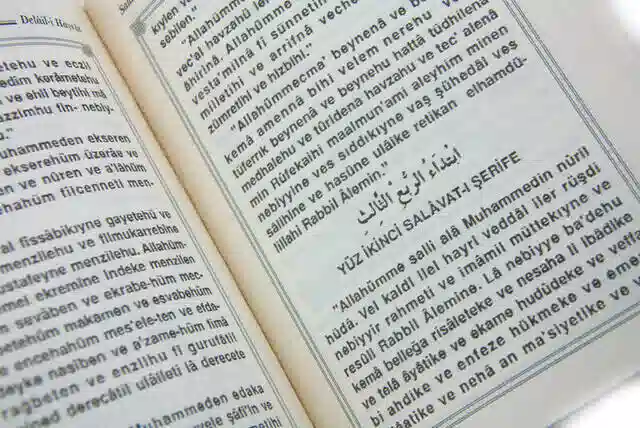 Delâil-i Hayrat
etehu ve eczil
edim korâmetehu
n ve ehil beytihi mâ
azzimhu fin- nebiy-
u."
uhammeden ekseren
ekserehüm üzerâe ve
en ve nûren ve a'lâhüm
hahüm filcenneti men-
al fissâbikıyne gayetehu ve
menzilehu ve filmukarrebine
ustafeyne menzilehu. Allahüm-
mel ekremine indeke menzilen
m sevâben ve ekrabe-hüm mec-
tehüm makamen ve esvabehüm
e encehahüm mes'ele-ten ve efda-
eyke nasiben ve a'zame-hüm fimâ
rağbeten ve enzilhu fi gurufatil
ined derecâtil ulâileti lâ derecete
Muhammeden edaka
kıylen ve
sebilen.
"Allahümme
vec'al havzahu
âhirinâ. Allahümme
vesta'milnâ fi sünnetih
milletihi ve arrifnâ veche
zümretihi ve hizbihi."
"Allahümmecma' beynenâ ve b
kemâ amennâ bihi velem nerehu ve
tüferrik beynenâ ve beynehu hattâ tüdhilenâ
medhalehu ve tûridena havzahu ve tec' alenâ
min Rüfekaihi maalmun'ami aleyhim minen
nebiyyine ves sıddikıyne vaş şühedâi ves
sâlihine ve hasüne ulâike retikan elhamdü-
lillahi Rabbil Âlemin."
ابْتِدَاءُ الرُّبْعِ الثَّالِثِ
YÜZ İKİNCİ SALÂVAT-I ŞERİFE
"Allahümme salli alâ Muhammedin nûril
hüdâ. Vel kaidi ilel hayri veddâi iler rüşdi
nebiyyir rahmeti ve imâmil müttekıyne ve
resûli Rabbil Âlemine. Lâ nebiyye ba'dehu
kemâ belleğa risâleteke ve nesaha li ibâdike
ve telâ âyâtike ve ekame hudûdeke ve veffa
bi ahdike ve enfeze hükmeke ve eme
âatike ve nehâ an ma'siyetike ve